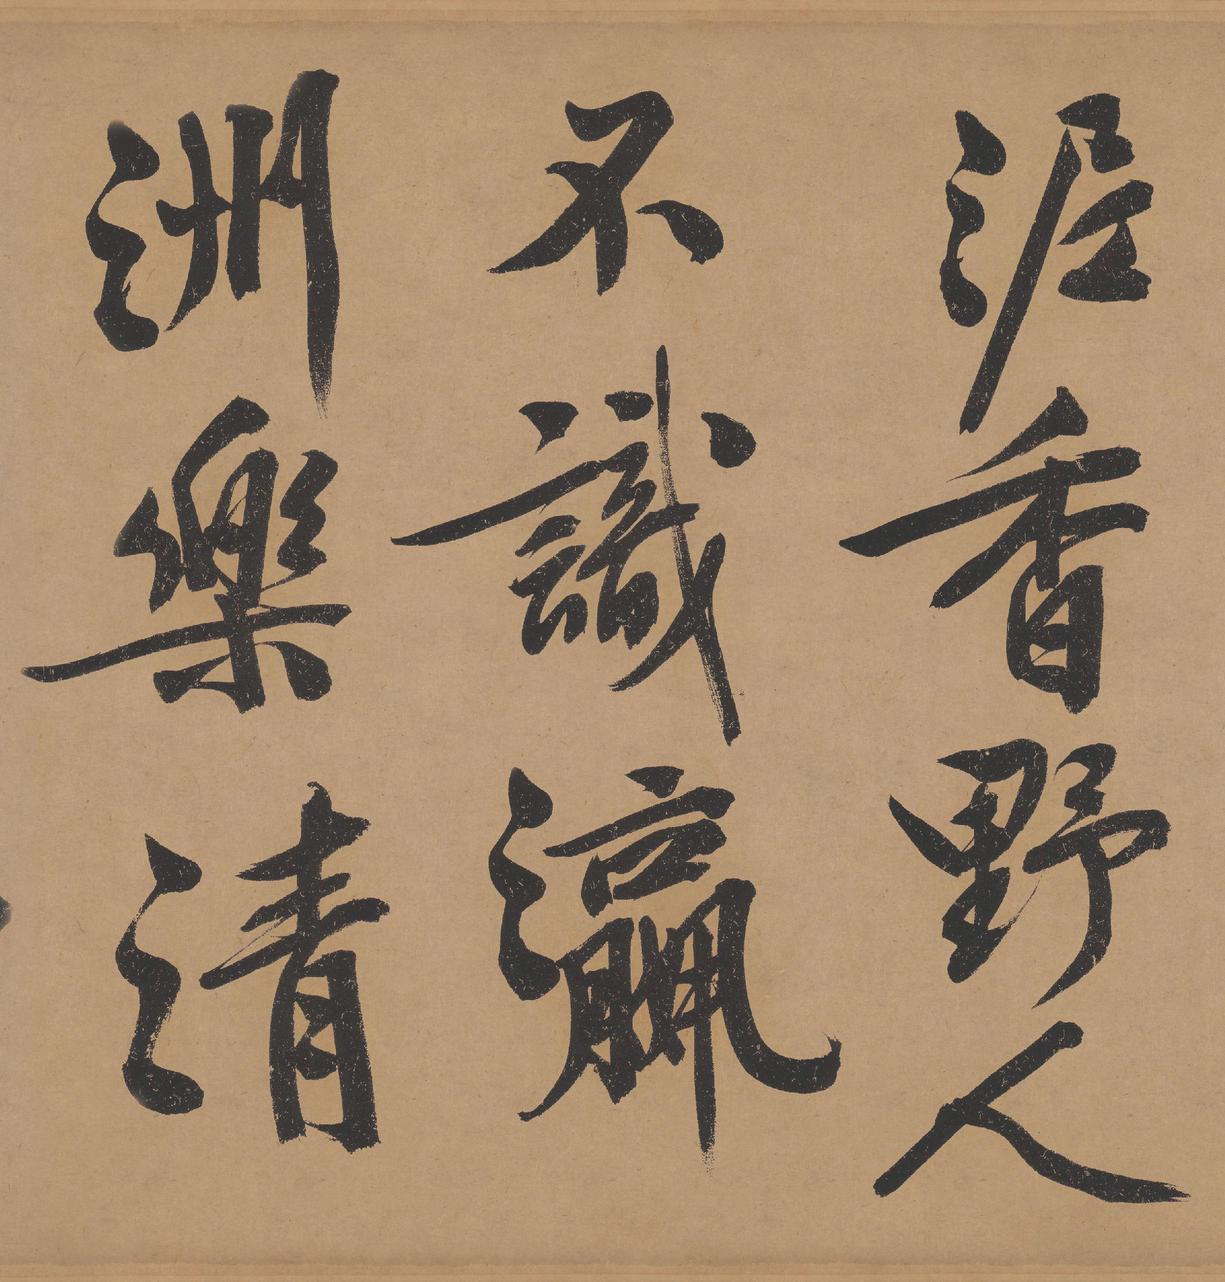 涯香野人
不識瀛
洲樂清